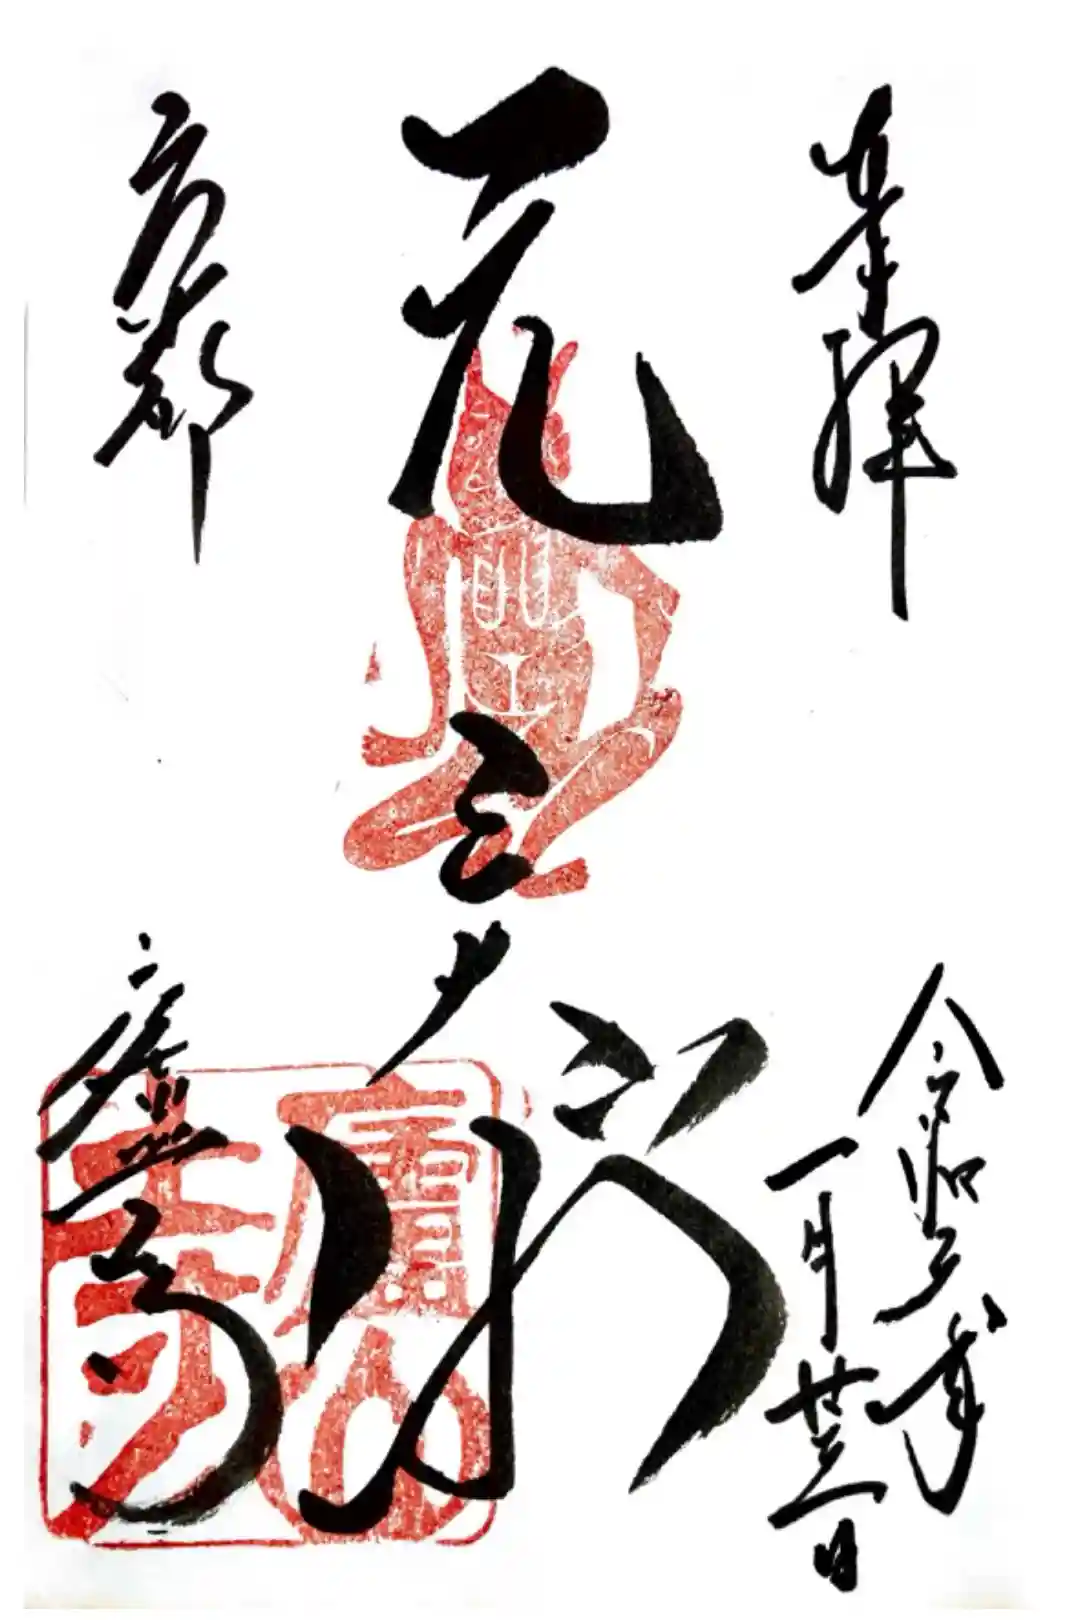 奉拝
令和二年
一月廿三日
元三大師
京都
廬山寺
廬山寺